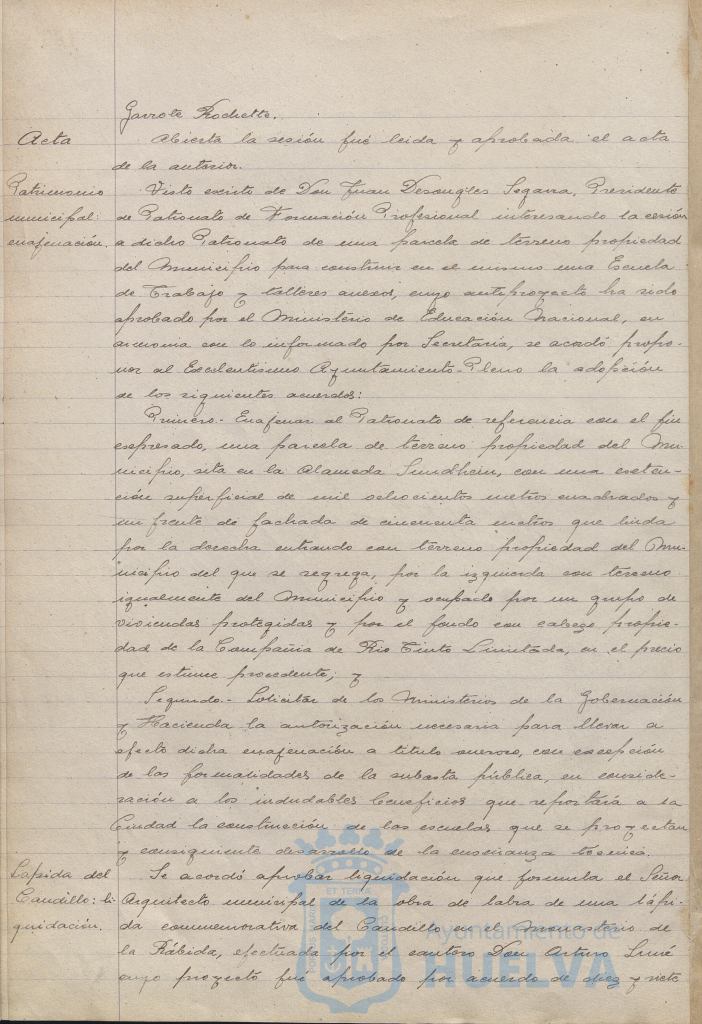 Garrote Rochette.
Acta
Abierta la sesión fué leida y aprobada el acta
de la anterior.
Patrimonio
municipal:
enajenación.
Visto escrito de Don Juan Desongles Segarra, Presidente
de Patronato de Formación Profesional interesando la cesión
a dicho Patronato de una parcela de terreno propiedad
del Municipio para construir en el mismo una Escuela
de Trabajo y talleres anexos, cuyo anteproyecto ha sido
aprobado por el Ministerio de Educación Nacional, en
armonia con lo informado por Secretaría, se acordó propo-
ner al Excelentísimo Ayuntamiento-Pleno la adopción
de los siguientes acuerdos:
Primero.- Enajenar al Patronato de referencia con el fin
expresado, una parcela de terreno propiedad del Mu-
nicipio, sita en la Alameda Sundhein, con una exten-
ción superficial de mil ochocientos metros cuadrados y
un frente de fachada de cincuenta metros que linda
por la derecha entrando con terreno propiedad del Mu-
nicipio del que se segrega, por la izquierda con terreno
igualmente del Municipio y ocupado por un grupo de
viviendas protegidas y por el fondo con cabezo propie-
dad de la Compañia de Rio Tinto Limitada, en el precio
que estime procedente; y
Segundo.- Solicitar de los Ministerios de la Gobernación
y Hacienda la autorización necesaria para llevar a
efecto dicha enajenación a titulo oneroso, con excepción
de las formalidades de la subasta pública, en conside-
ración a los indudables beneficios que reportará a la
Ciudad la construcción de las escuelas que se proyectan
y consiguiente desarrollo de la enseñanza tecnica.
Lapida del
Caudillo: li-
quidación.
Se acordó aprobar liquidación que formula el Señor
Arquitecto municipal de la obra de labra de una lápi-
da conmemorativa del Caudillo en el Monasterio de
la Rábida, efectuada por el cantero Don Arturo
cuyo proyecto fué aprobado por acuerdo de diez y siete
Ayuntamiento de
HUELVA